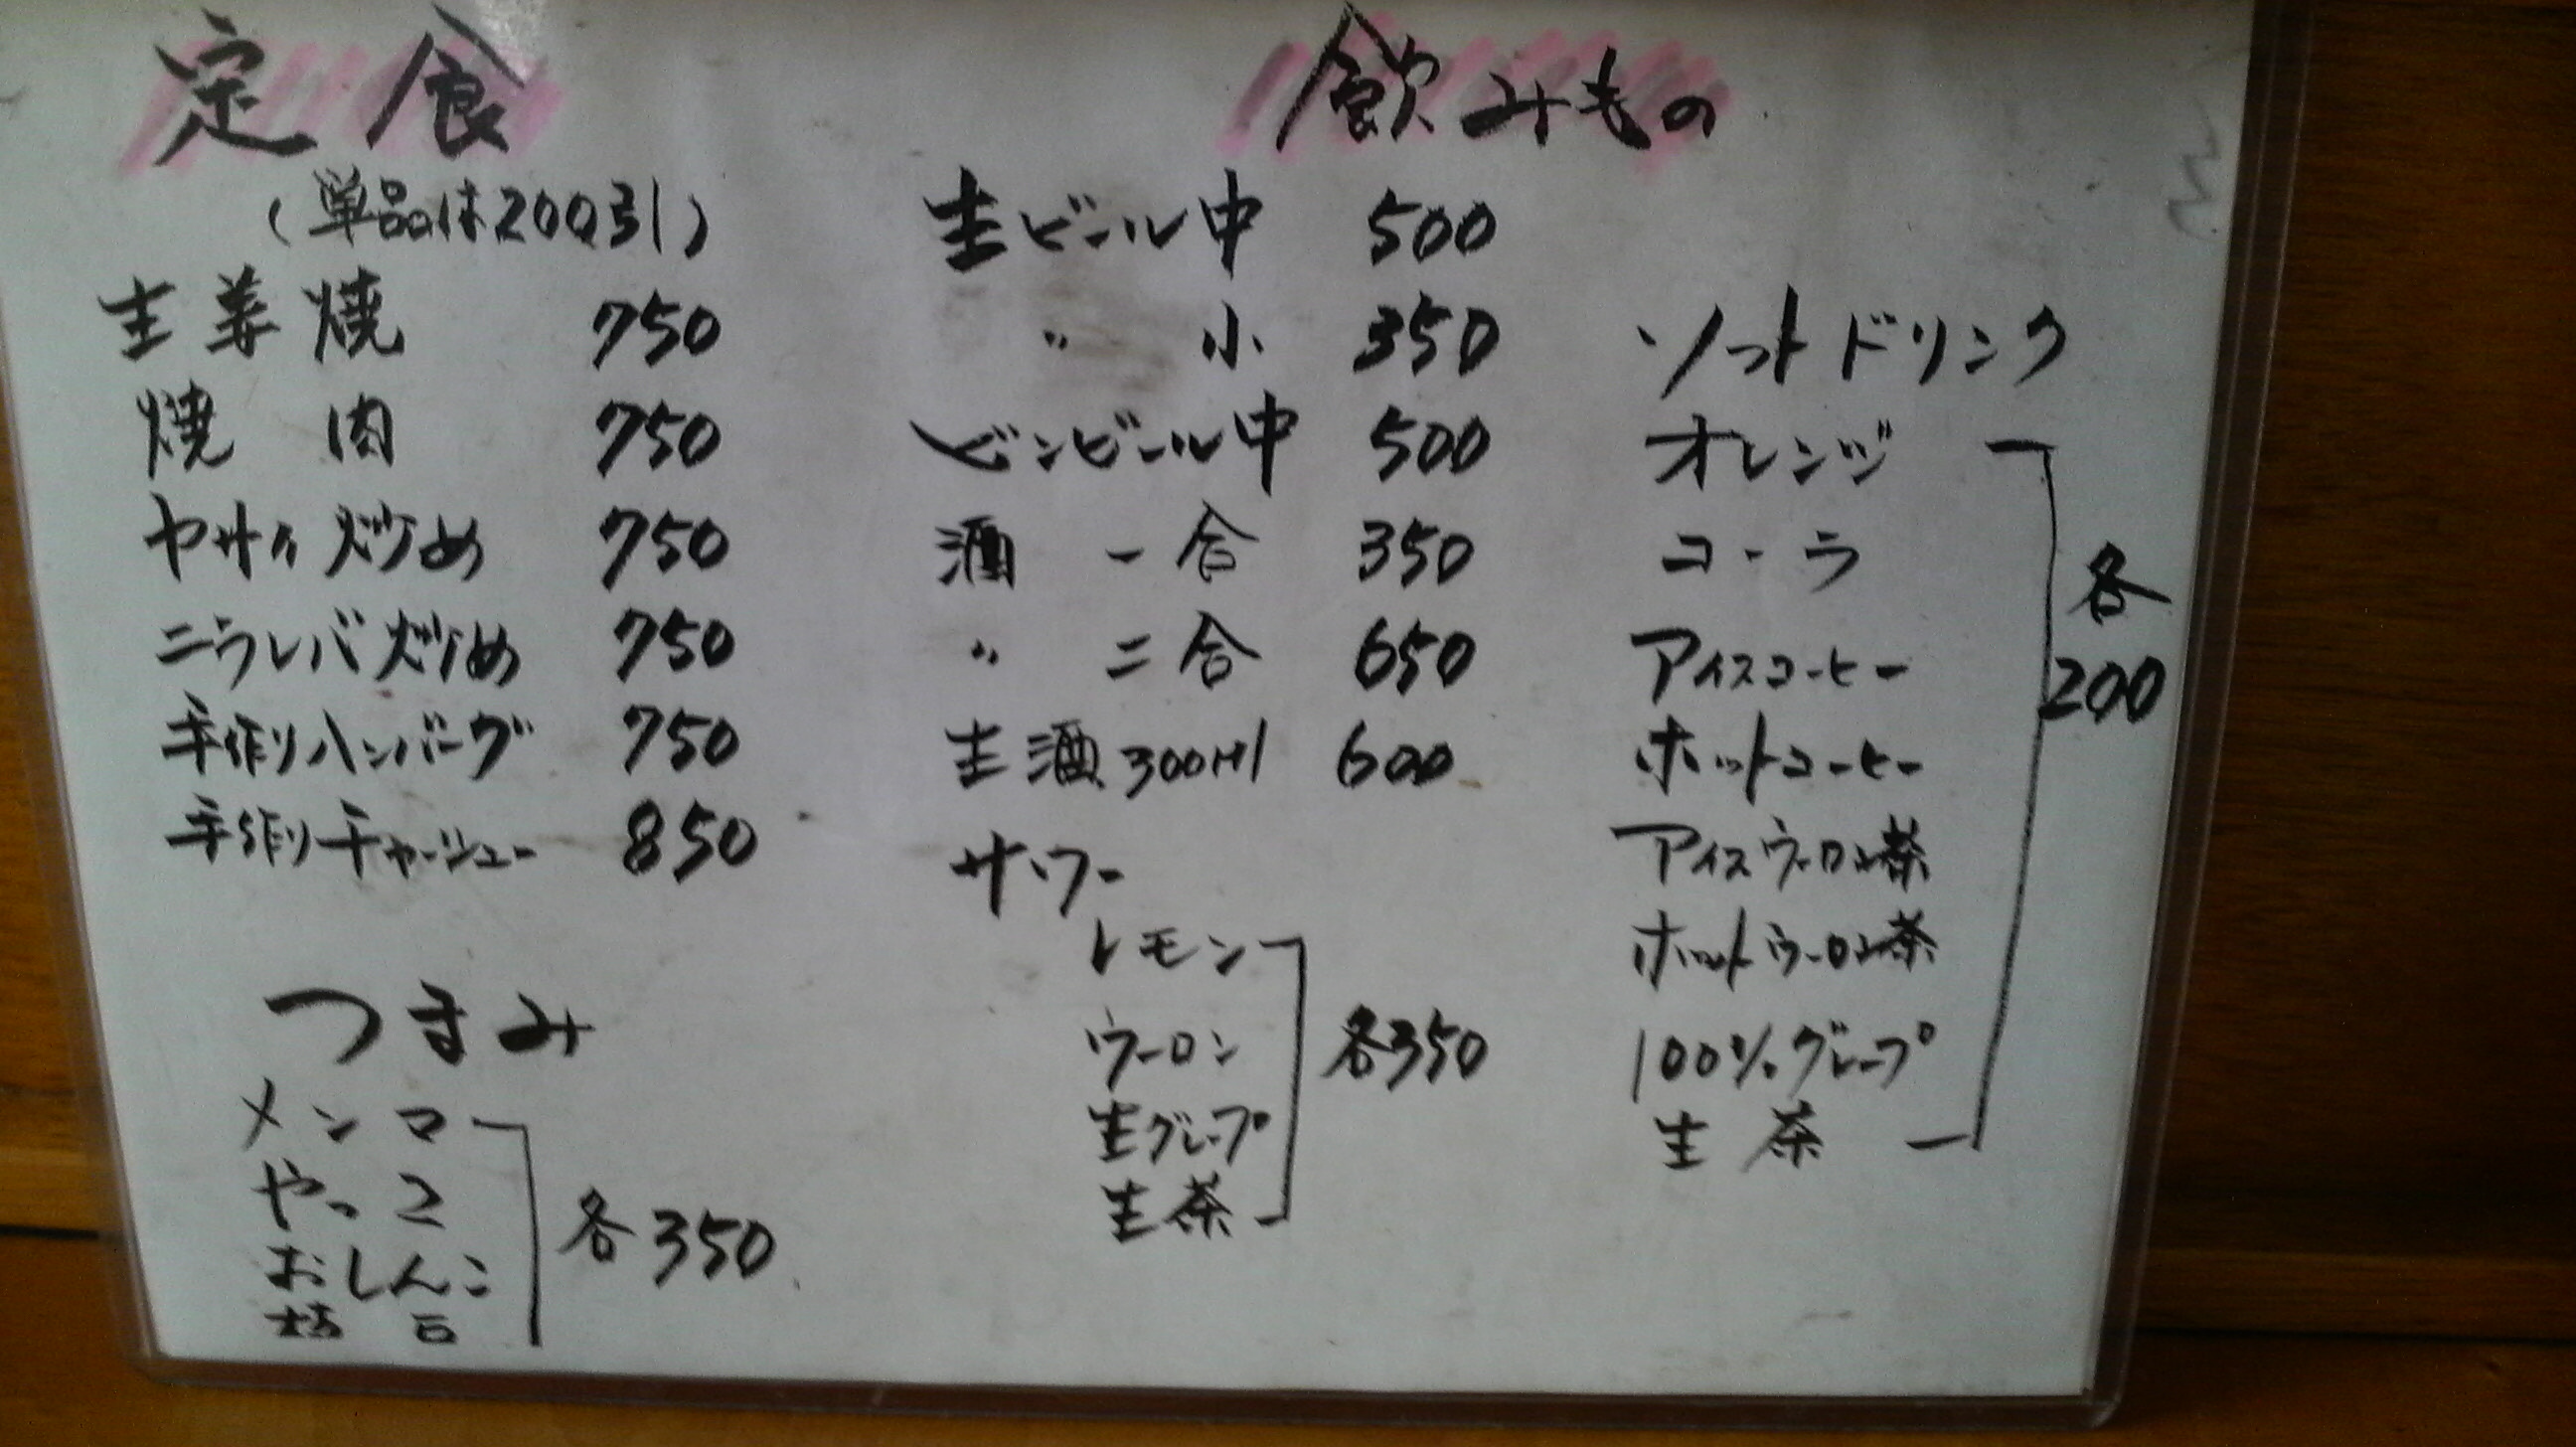 定食
(単品は200引)
生姜焼 750
焼肉 750
ヤサイ炒め 750
ニラレバ炒め 750
手作りハンバーグ 750
手作りチャーシュー 850
つまみ
メンマ
やっこ
おしんこ
枝豆
各350
飲みもの
生ビール中 500
〃 小 350
ビンビール中 500
酒 一合 350
〃 二合 650
生酒300ml 600
サワー
レモン
ウーロン
生グレープ
生茶
各350
ソフトドリンク
オレンジ
コーラ
アイスコーヒー
ホットコーヒー
アイスウーロン茶
ホットウーロン茶
100%グレープ
生茶
各
200